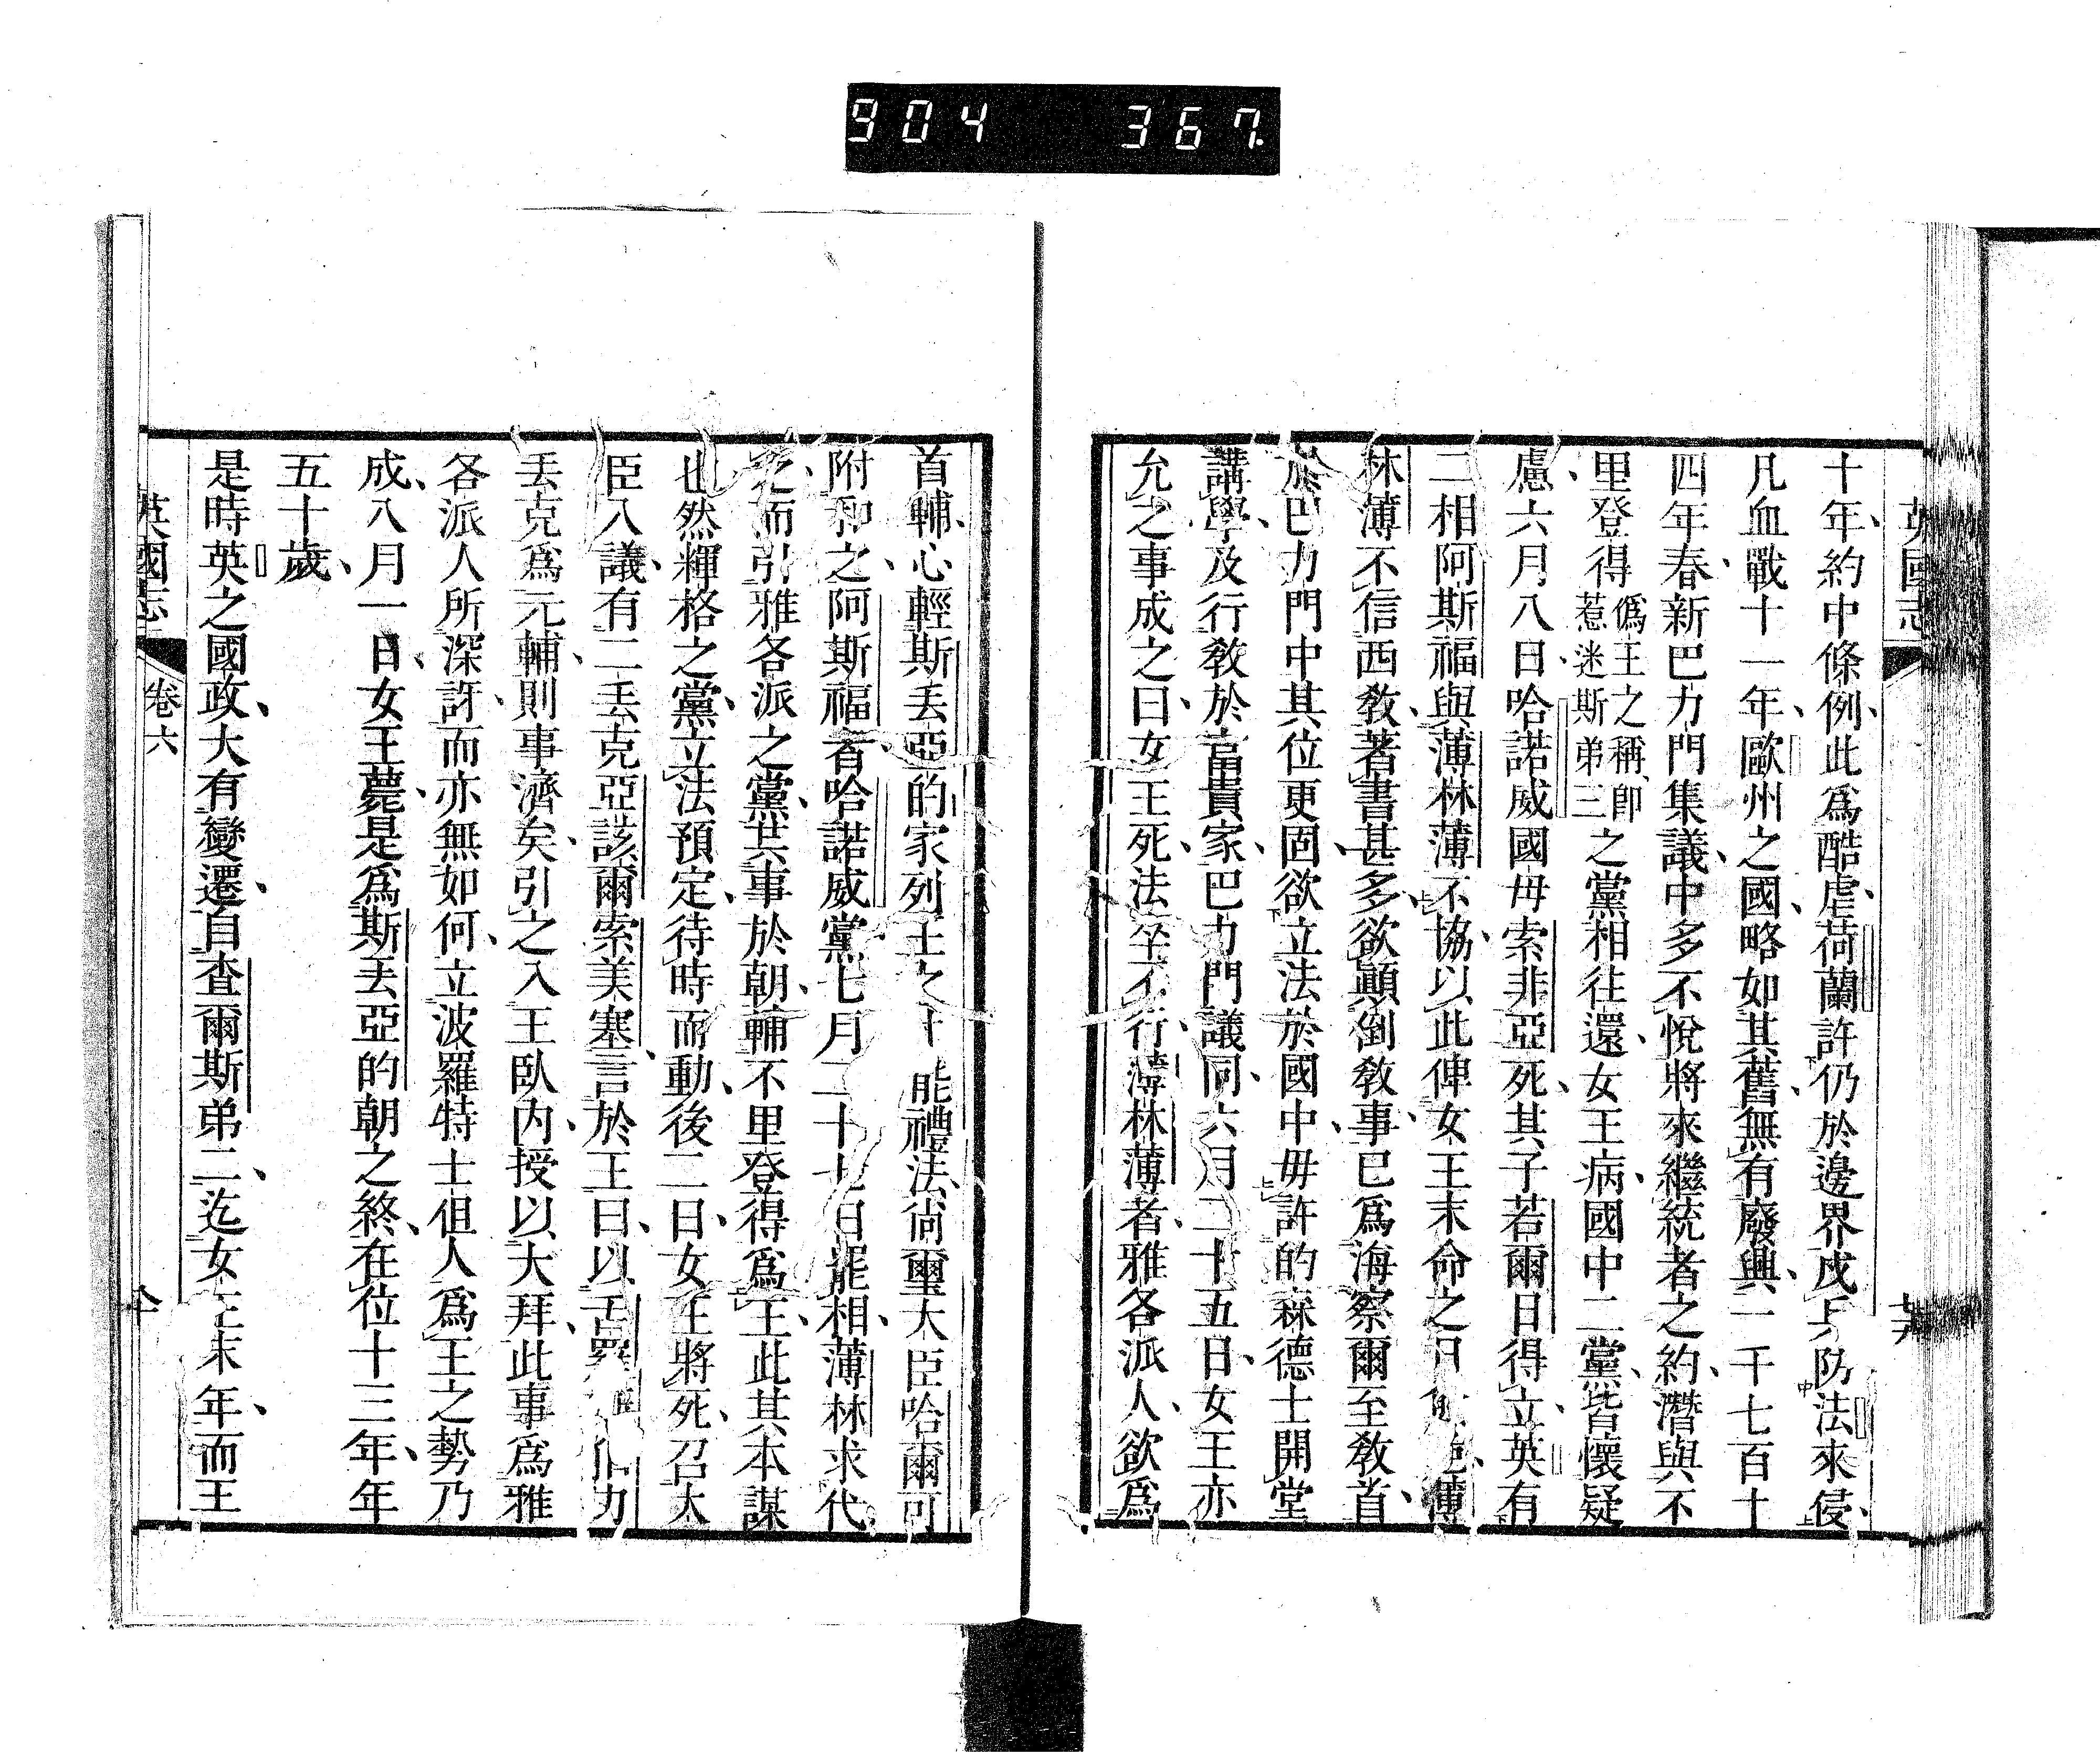 904 367.
英國志
十年、約中條例、此爲酷虐、荷蘭許仍於邊界戍兵防法來侵、
凡血戰十一年、歐州之國、略如其舊、無有廢興、一千七百十
四年春、新巴力門集議、中多不悅將來繼統者之約、潛與不
里登得僞王之稱、卽惹迷斯弟三之黨相往還、女王病、國中二黨、皆懷疑
慮、六月八日、哈諾威國母索非亞死、其子若爾日得立、英有
二相阿斯福與薄林薄不協、以此俾女王末命之薄
林薄不信西教、著書甚多、欲顚倒教事、已爲海察爾至教首、
於巴力門中其位更固、欲立法於國中、毋許的森德士開堂
講學、及行教於富貴家、巴力門議同、六月二十五日、女王亦
允之事成之曰、女王死、法坐不行、薄林薄者、雅各派人、欲爲
首輔、心輕斯丟亞的家列能禮法、尚爾璽大臣哈爾可
附和之、阿斯福者、哈諾威黨、七月二十七日罷相、薄林求代
之、而引雅各派之黨、共事於朝、輔不里登得爲王、此其本謀
也、然輝格之黨、立法預定、待時而動、後二日、女王將死、召大
臣入議、有二丟克亞該爾索美塞、言於王曰、以力
丟克爲元輔、則事濟矣、引之入王臥內、授以大拜、此事爲雅
各派人所深訝、而亦無如何、立波羅特士但人爲王之勢乃
成、八月一日、女王薨、是爲斯丟亞的朝之終、在位十三年、年
五十歲、
是時英之國政、大有變遷、自查爾斯弟二、迄女王末年、而王
英國志 卷六